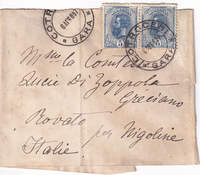 COTRO
GARA
5 5
COTROCENI
GARA
M^me la Comtesse
Lucie di Zoppola
Greciano
Rovato per Nigoline
Italie